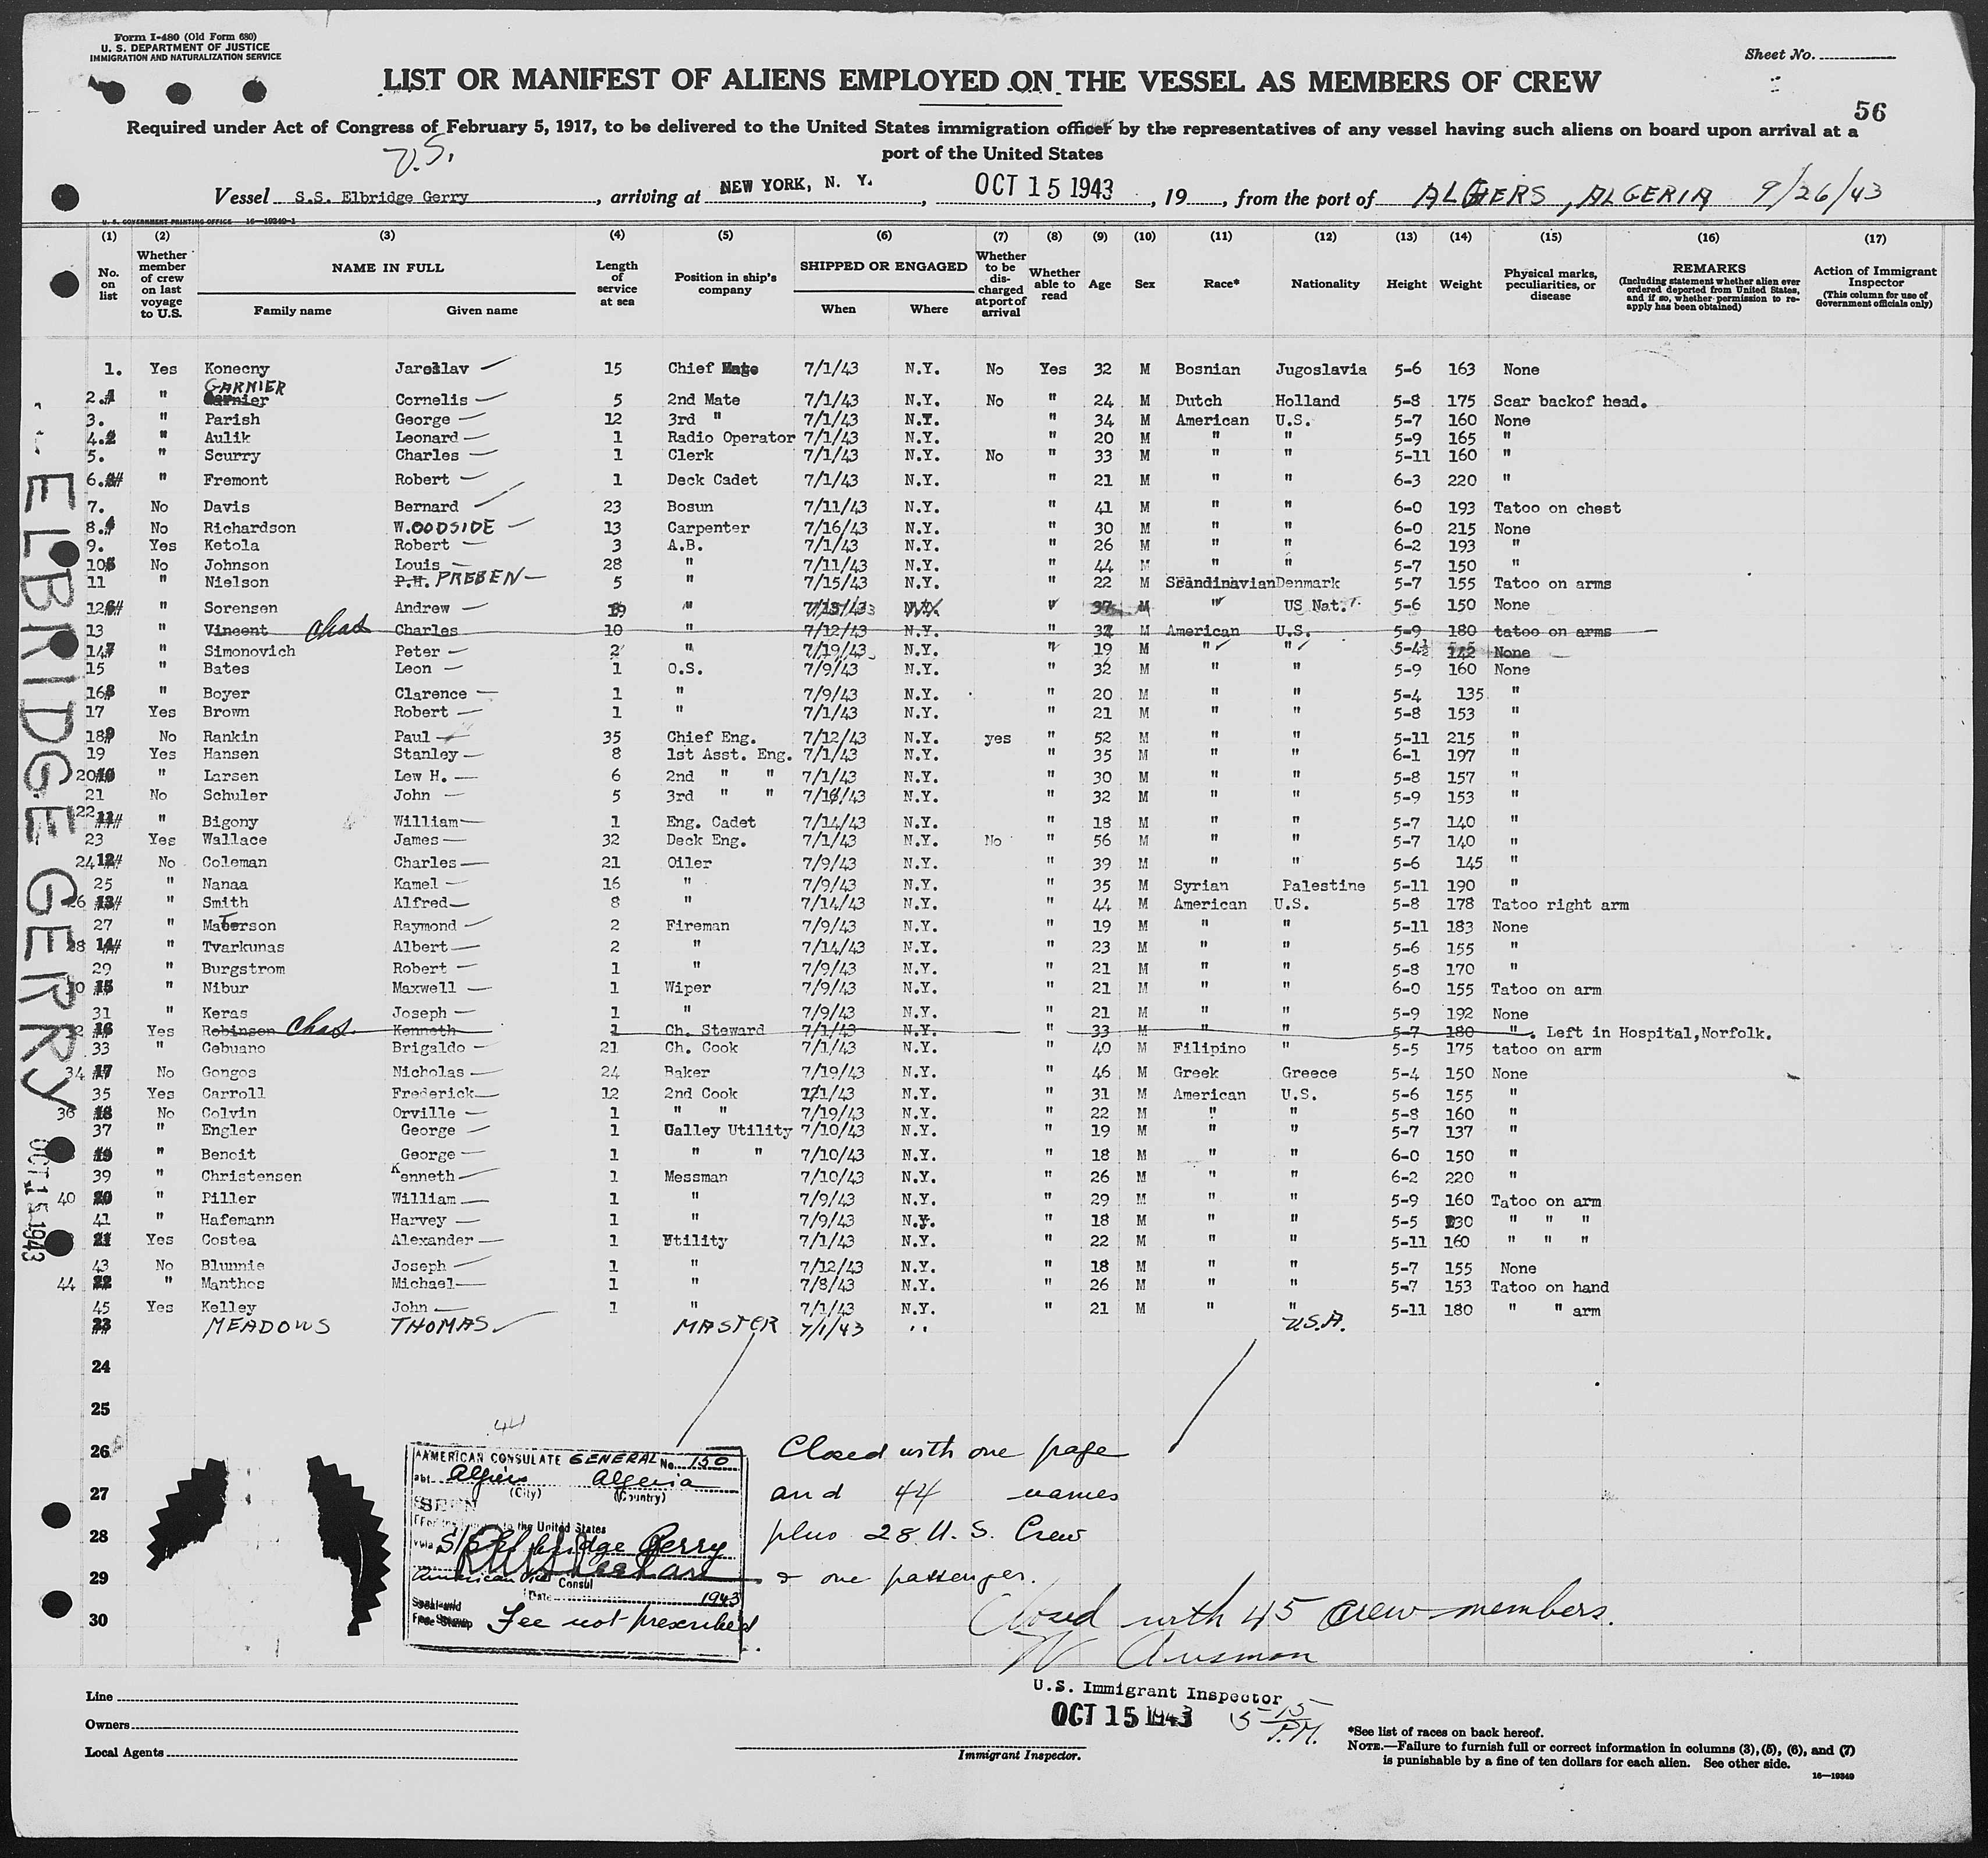 Form I-480 (Old Form 680)
U. S. DEPARTMENT OF JUSTICE
IMMIGRATION AND NATURALIZATION SERVICE
Sheet No.
LIST OR MANIFEST OF ALIENS EMPLOYED ON THE VESSEL AS MEMBERS OF CREW
56
Required under Act of Congress of February 5, 1917, to be delivered to the United States immigration officer by the representatives of any vessel having such aliens on board upon arrival at a
port of the United States
U.S.
Vessel S.S. Elbridge Gerry, arriving at NEW YORK, N. Y., OCT 15 1943, 19, from the port of ALGIERS, ALGERIA 9/26/43
U. S. GOVERNMENT PRINTING OFFICE 16—19340-1
(1) (2) (3) (4) (5) (6) (7) (8) (9) (10) (11) (12) (13) (14) (15) (16) (17)
No. on list
Whether member of crew on last voyage to U.S.
NAME IN FULL
Family name Given name
Length of service at sea
Position in ship's company
SHIPPED OR ENGAGED
When Where
Whether to be discharged at port of arrival
Whether able to read
Age
Sex
Race*
Nationality
Height
Weight
Physical marks, peculiarities, or disease
REMARKS
(Including statement whether alien ever ordered deported from United States, and if so, whether permission to re-apply has been obtained)
Action of Immigrant Inspector
(This column for use of Government officials only)
1. Yes Konecny Jaroslav 15 Chief Mate 7/1/43 N.Y. No Yes 32 M Bosnian Jugoslavia 5-6 163 None
GARNIER
2. " Cornelis 5 2nd Mate 7/1/43 N.Y. No " 24 M Dutch Holland 5-8 175 Scar backof head.
3. " Parish George 12 3rd " 7/1/43 N.Y. " 34 M American U.S. 5-7 160 None
4. " Aulik Leonard 1 Radio Operator 7/1/43 N.Y. " 20 M " " 5-9 165 "
5. " Scurry Charles 1 Clerk 7/1/43 N.Y. No " 33 M " " 5-11 160 "
6. " Fremont Robert 1 Deck Cadet 7/1/43 N.Y. " 21 M " " 6-3 220 "
7. No Davis Bernard 23 Bosun 7/11/43 N.Y. " 41 M " " 6-0 193 Tatoo on chest
8. No Richardson W.OODSIDE 13 Carpenter 7/16/43 N.Y. " 30 M " " 6-0 215 None
9. Yes Ketola Robert 3 A.B. 7/1/43 N.Y. " 26 M " " 6-2 193 "
10 No Johnson Louis 28 " 7/11/43 N.Y. " 44 M " " 5-7 150 "
11 " Nielson P.H. PREBEN 5 " 7/15/43 N.Y. " 22 M Scandinavian Denmark 5-7 155 Tatoo on arms
12 " Sorensen Andrew 19 " N.Y. " 37 M " US Nat. 5-6 150 None
13 " Vincent Chas Charles 10 " 7/12/43 N.Y. " M American U.S. 5-9 180 tatoo on arms
14 " Simonovich Peter 2 " 7/19/43 N.Y. " 19 M " " 5-4½ 142 None
15 " Bates Leon 1 O.S. 7/9/43 N.Y. " 32 M " " 5-9 160 None
16 " Boyer Clarence 1 " 7/9/43 N.Y. " 20 M " " 5-4 135 "
17 Yes Brown Robert 1 " 7/1/43 N.Y. " 21 M " " 5-8 153 "
18 No Rankin Paul 35 Chief Eng. 7/12/43 N.Y. yes " 52 M " " 5-11 215 "
19 Yes Hansen Stanley 8 1st Asst. Eng. 7/1/43 N.Y. " 35 M " " 6-1 197 "
20 " Larsen Lew H. 6 2nd " " 7/1/43 N.Y. " 30 M " " 5-8 157 "
21 No Schuler John 5 3rd " " 7/16/43 N.Y. " 32 M " " 5-9 153 "
22 " Bigony William 1 Eng. Cadet 7/14/43 N.Y. " 18 M " " 5-7 140 "
23 Yes Wallace James 32 Deck Eng. 7/1/43 N.Y. No " 56 M " " 5-7 140 "
24 No Coleman Charles 21 Oiler 7/9/43 N.Y. " 39 M " " 5-6 145 "
25 " Nanaa Kamel 16 " 7/9/43 N.Y. " 35 M Syrian Palestine 5-11 190 "
26 " Smith Alfred 8 " 7/14/43 N.Y. " 44 M American U.S. 5-8 178 Tatoo right arm
27 " Materson Raymond 2 Fireman 7/9/43 N.Y. " 19 M " " 5-11 183 None
28 " Tvarkunas Albert 2 " 7/14/43 N.Y. " 23 M " " 5-6 155 "
29 " Burgstrom Robert 1 " 7/9/43 N.Y. " 21 M " " 5-8 170 "
30 " Nibur Maxwell 1 Wiper 7/9/43 N.Y. " 21 M " " 6-0 155 Tatoo on arm
31 " Keras Joseph 1 " 7/9/43 N.Y. " 21 M " " 5-9 192 None
32 Yes Robinson Chas. Kenneth 1 Ch. Steward 7/1/43 N.Y. " 33 M " " 5-7 180 ". Left in Hospital, Norfolk.
33 " Cebuano Brigaldo 21 Ch. Cook 7/1/43 N.Y. " 40 M Filipino " 5-5 175 tatoo on arm
34 No Gongos Nicholas 24 Baker 7/19/43 N.Y. " 46 M Greek Greece 5-4 150 None
35 Yes Carroll Frederick 12 2nd Cook 7/1/43 N.Y. " 31 M American U.S. 5-6 155 "
36 No Colvin Orville 1 " " 7/19/43 N.Y. " 22 M " " 5-8 160 "
37 " Engler George 1 Galley Utility 7/10/43 N.Y. " 19 M " " 5-7 137 "
" Benoit George 1 " " 7/10/43 N.Y. " 18 M " " 6-0 150 "
39 " Christensen Kenneth 1 Messman 7/10/43 N.Y. " 26 M " " 6-2 220 "
40 " Piller William 1 " 7/9/43 N.Y. " 29 M " " 5-9 160 Tatoo on arm
41 " Hafemann Harvey 1 " 7/9/43 N.Y. " 18 M " " 5-5 130 " " "
Yes Costea Alexander 1 Utility 7/1/43 N.Y. " 22 M " " 5-11 160 " " "
43 No Blunnie Joseph 1 " 7/12/43 N.Y. " 18 M " " 5-7 155 None
44 " Manthos Michael 1 " 7/8/43 N.Y. " 26 M " " 5-7 153 Tatoo on hand
45 Yes Kelley John 1 " 7/1/43 N.Y. " 21 M " " 5-11 180 " " arm
23 MEADOWS THOMAS MASTER 7/1/43 " U.S.A.
24
25
26
27
28
29
30
ELBRIDGE GERRY
OCT 15 1943
44
AMERICAN CONSULATE GENERAL No. 150
Algiers Algeria
(City) (Country)
SEEN
to the United States
S/S Elbridge Gerry
American Vice Consul
Date 1943
Seal and
Fee Stamp Fee not prescribed
Closed with one page
and 44 names
plus 28 U.S. Crew
& one passenger.
Closed with 45 crew members.
U.S. Immigrant Inspector
OCT 15 1943 5 15 P.M.
Line
Owners
Local Agents
Immigrant Inspector.
*See list of races on back hereof.
NOTE.—Failure to furnish full or correct information in columns (3), (5), (6), and (7)
is punishable by a fine of ten dollars for each alien. See other side.
16—19340